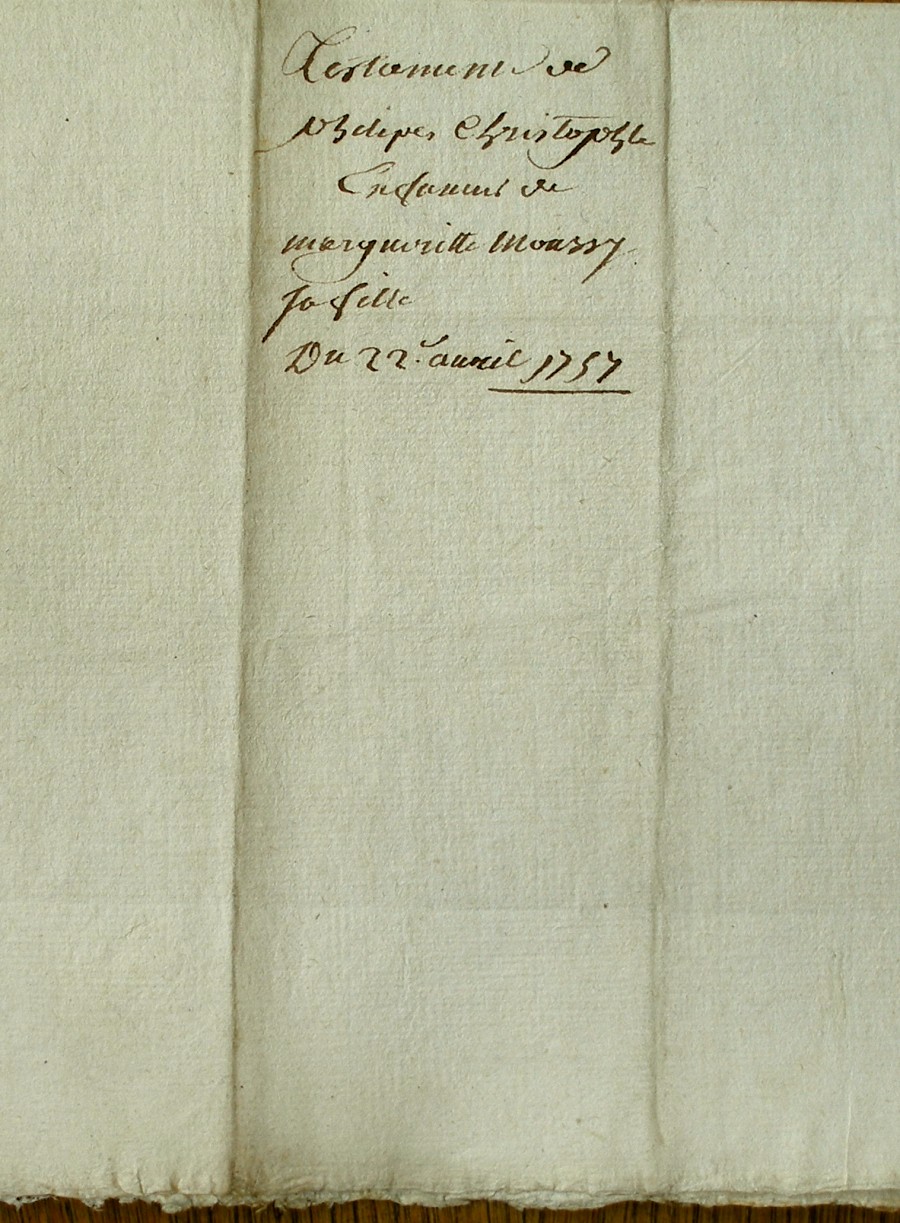 Testament de
philipes Christophle
En faveur de
margueritte Moussy
sa fille
Du 22.e avril 1757